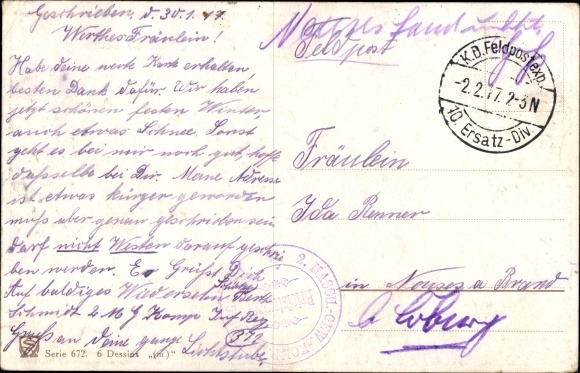 Geschrieben, d. 30.1.17.
Werthes Fräulein!
Habe deine werte Kark erhalten,
besten Dank dafür. Wir haben
jetzt schönen festen Winter,
auch etwas Schnee. Sonst
geht es bei mir noch gut, hoffe
dasselbe bei Dir. Meine Adresse
ist etwas kürzer geworden
muß aber genau geschrieben sein
darf nicht Westen darauf geschrie
ben werden. Es Grüßt Dich
Auf baldiges Wiedersehn
Schmidt 2 M G Komp Inf Reg
Gruß an deine ganze Lichtstube
Serie 672. 6 Dessins „(m)"
Feldpost
K.D. Feldpostexp.
-2.2.17. 2-3 N
10. Ersatz-Div.
Fräulein
Ida Renner
in Neuses a Brand
b Coburg
2. MASCH. GEW.